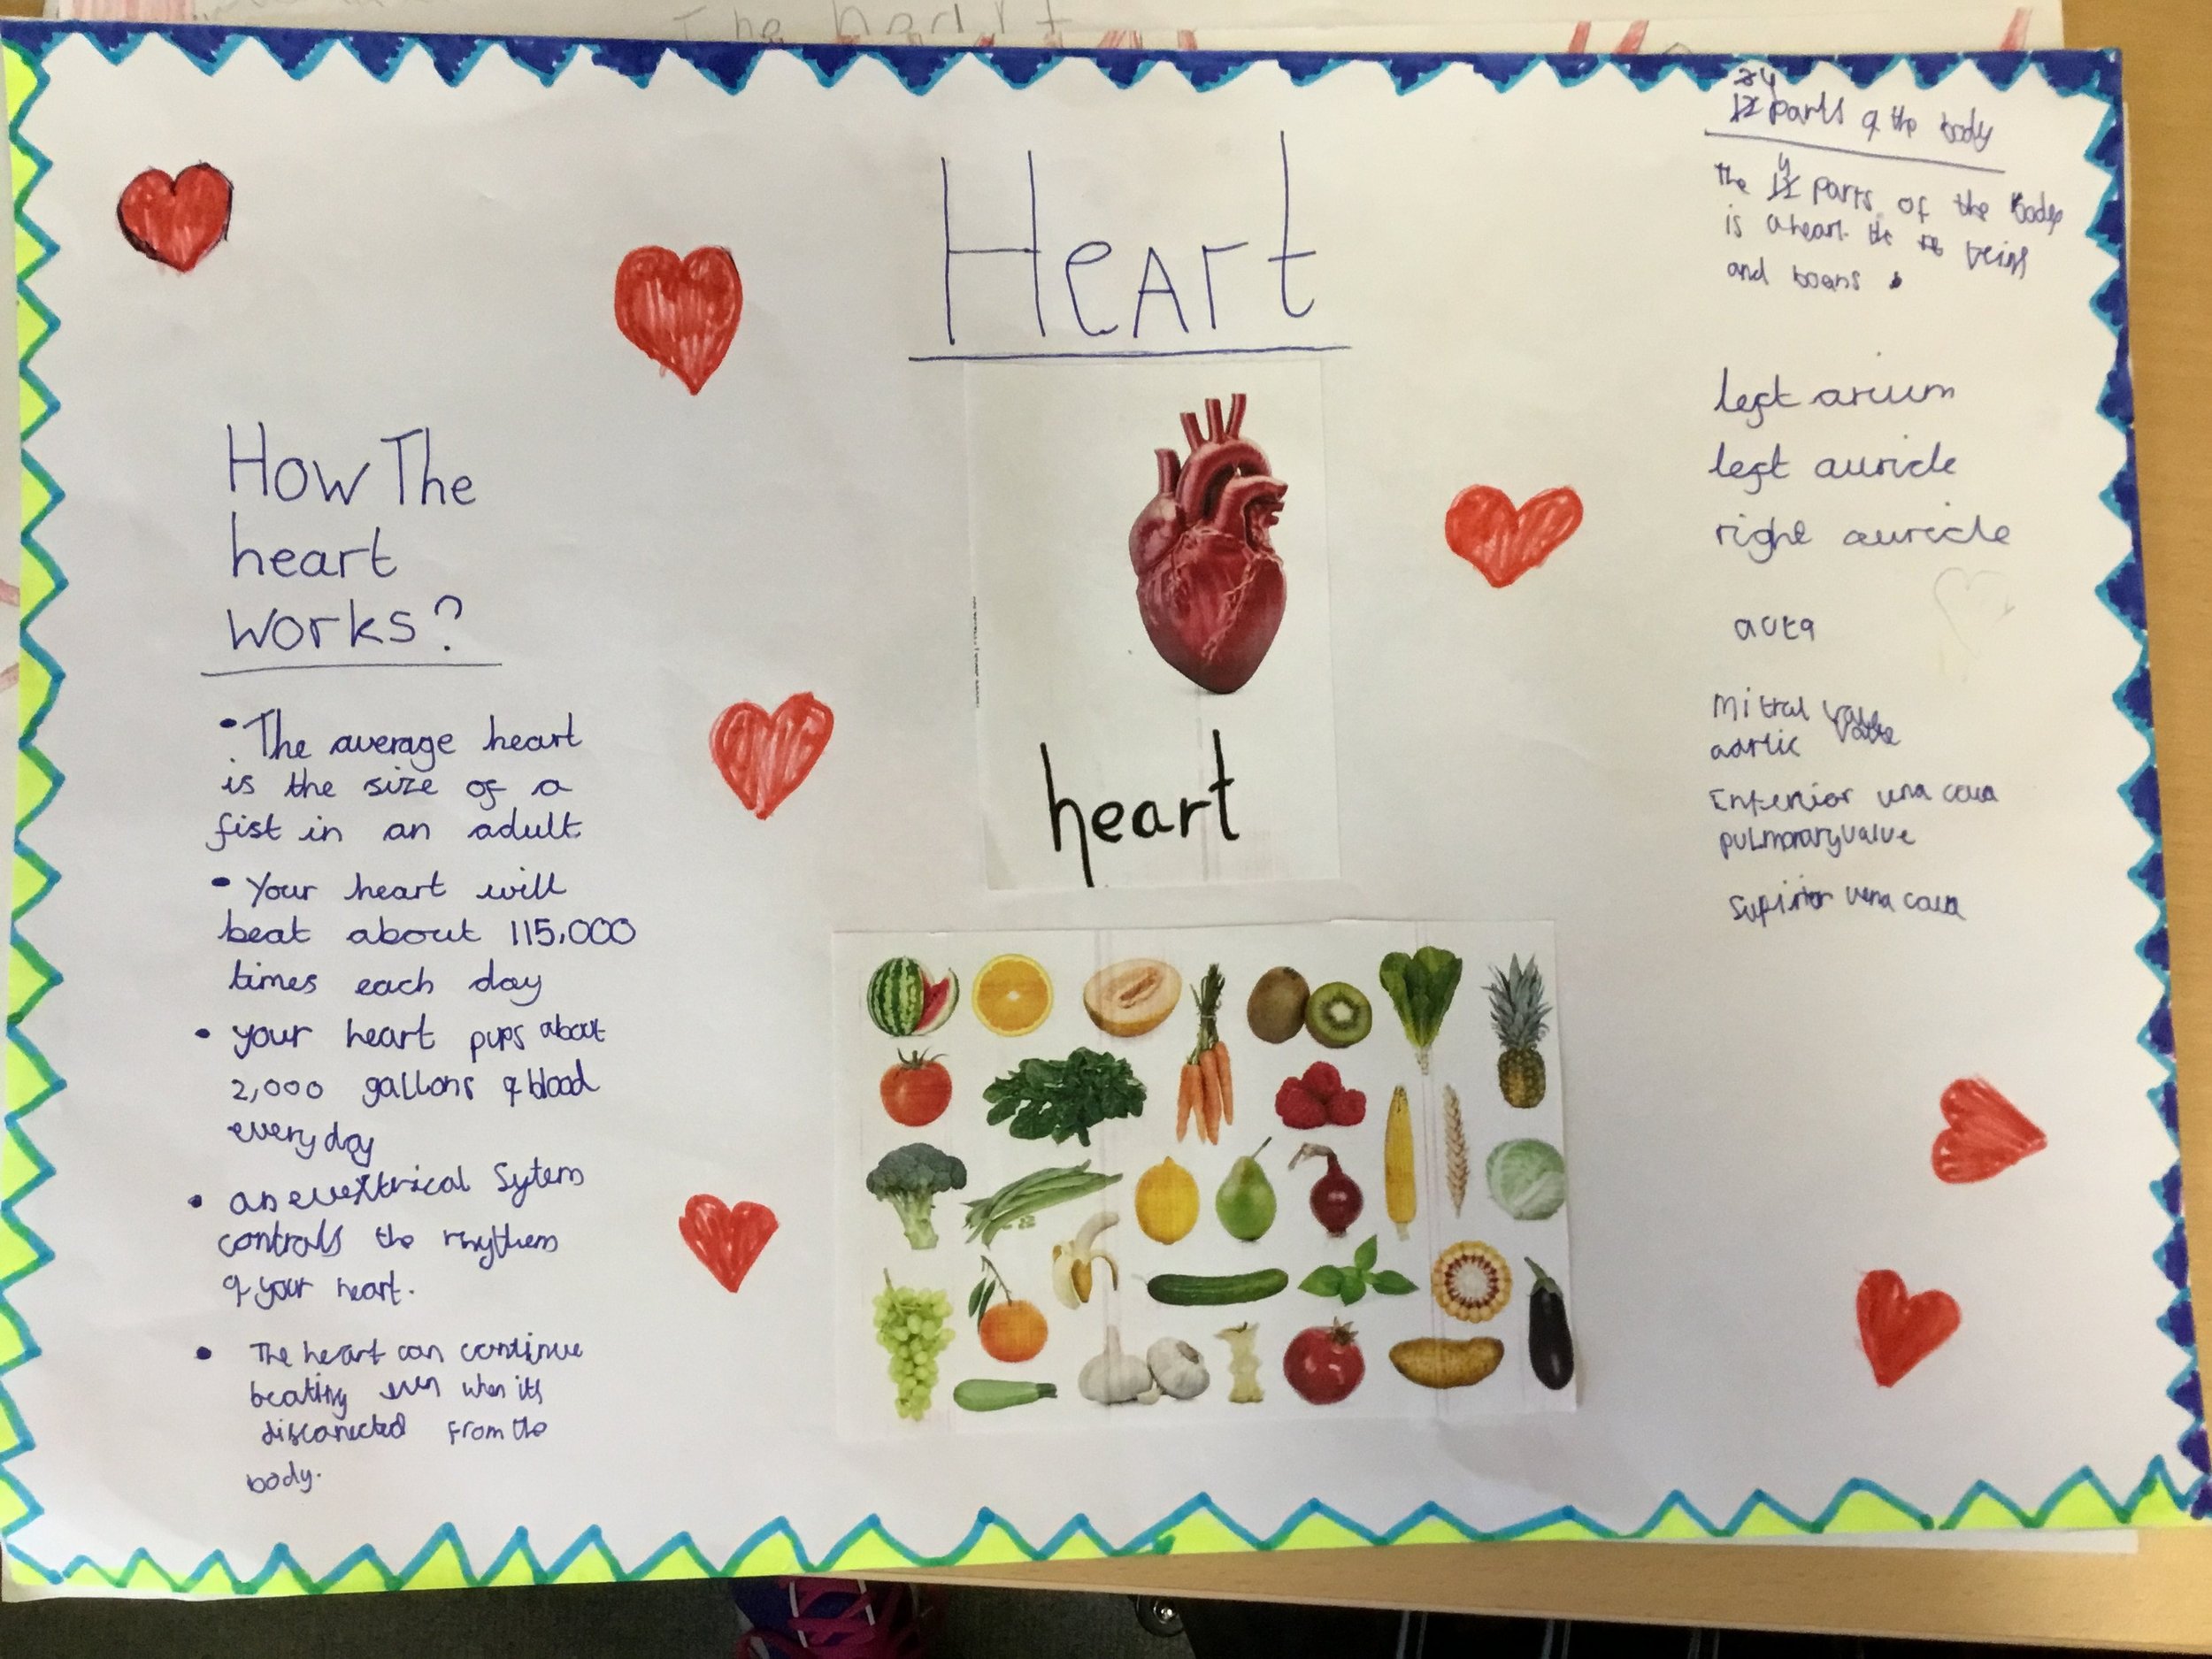 The heart
Heart
How The
heart
works?
• The average heart
is the size of a
fist in an adult
• Your heart will
beat about 115,000
times each day
• your heart pups about
2,000 gallons of blood
every day
• an Sytem
controlls the rhythem
of your heart.
• The heart can continue
beating even when its
disconected from the
body.
heart
parts of the body
the parts of the Body
is a heart the veins
and
left arium
left auricle
right auricle
aota
Mitral valve
aortic valve
Enferior vena cava
pulmonary valve
Supirior vena cava